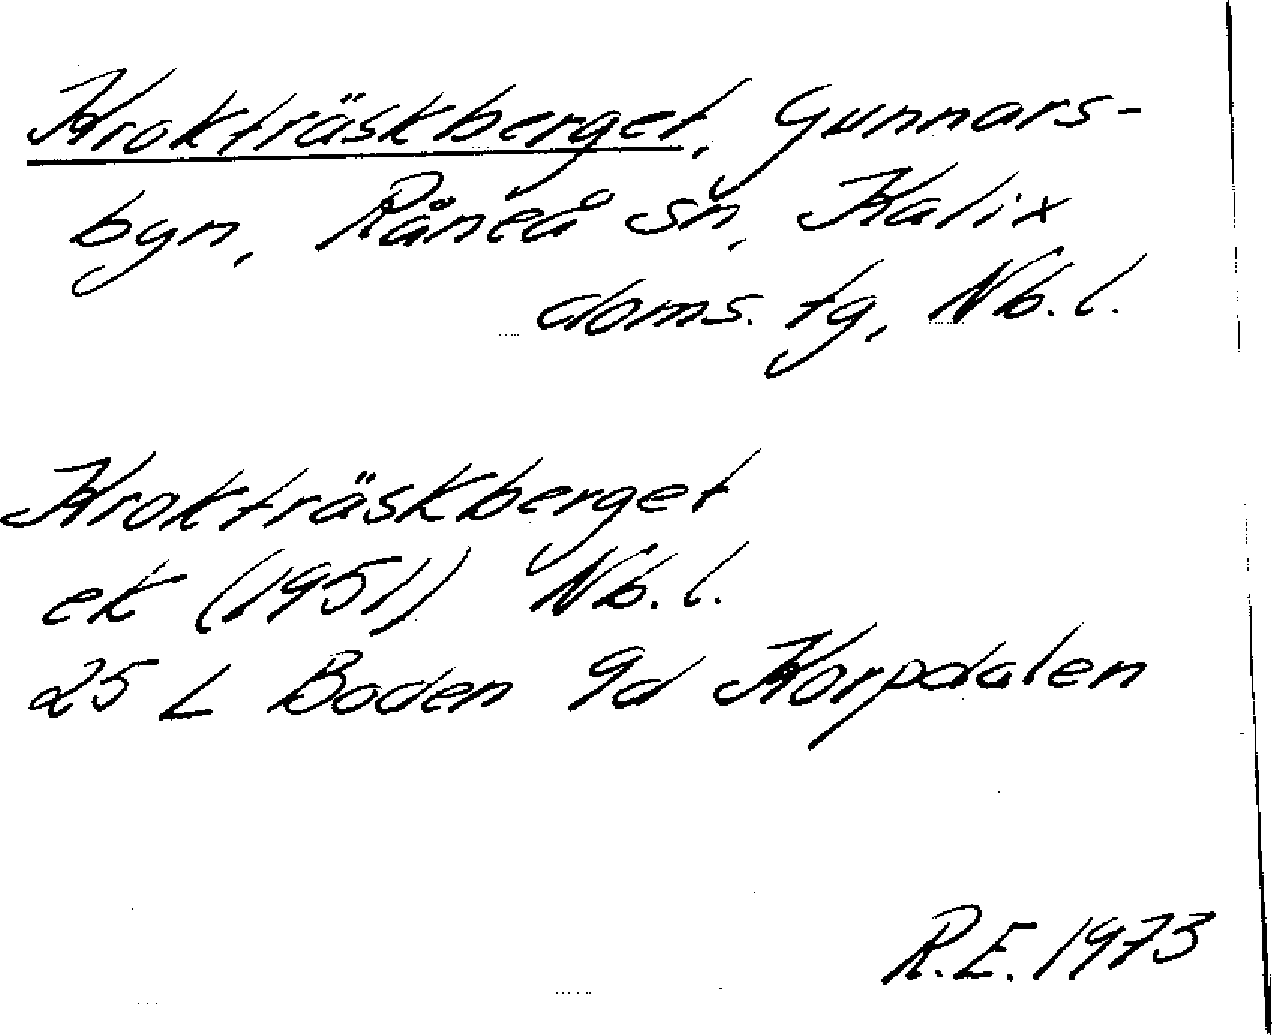 Krokträskberget, Gunnars-
byn, Råneå sn, Kalix
doms. tg, Nb. l.
Krokträskberget
ek (1951) Nb. l.
25 L Boden 9d Korpdalen
R.E. 1973